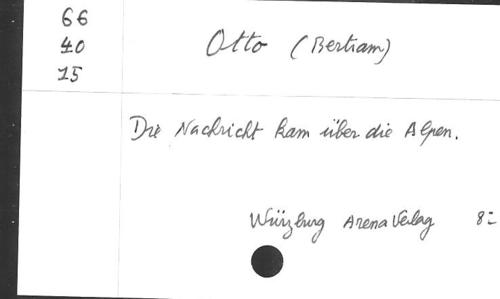 66
40
15
Otto (Bertram)
Die Nachricht kam über die Alpen.
Würzburg Arena Verlag 8: